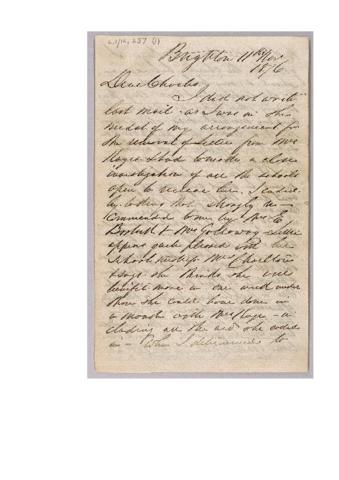 Brighton 11th Nov
1876
Dear Charles
I did not write
last mail as I was in the
midst of my arrangements for
the removal of from Mrs
& had to make a close
investigation of all the schools
open to receive her, I ended
by taking that strongly
commended to me by Mrs E
& Mrs Galloway
appears quite pleased with her
School mistress Mrs Charlton
& says she thinks she will
benefit more in one week under
than she could have done in
6 months with Mrs - in
cluding all the she
in - When I determined to